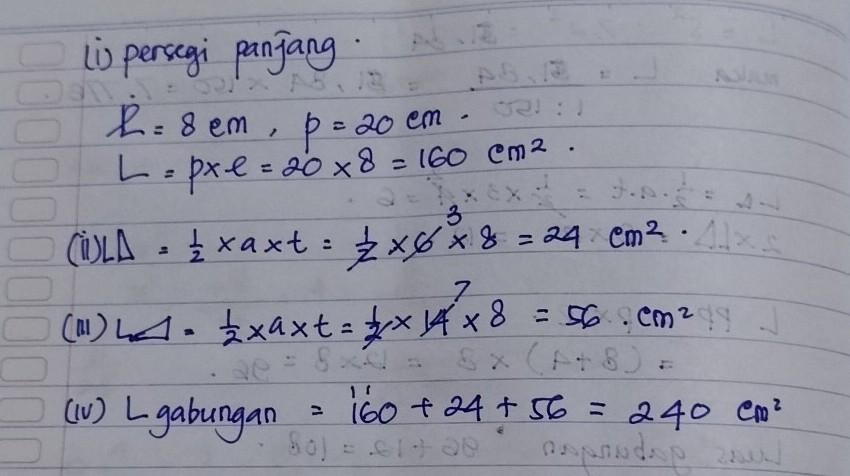 (i) persegi panjang.
l = 8 cm, p = 20 cm.
L = p x l = 20 x 8 = 160 cm².
(ii) L△ = 1/2 x a x t = 1/2 x 6 3 x 8 = 24 cm².
(III) L◿ = 1/2 x a x t = 1/2 x 14 7 x 8 = 56. cm²
(iv) L gabungan = 160 + 24 + 56 = 240 cm²